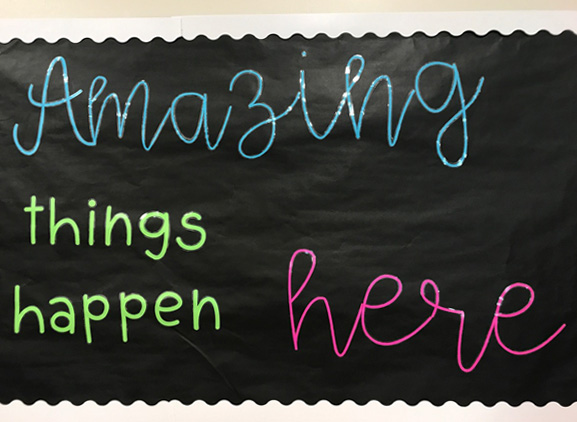 Amazing
things
happen here